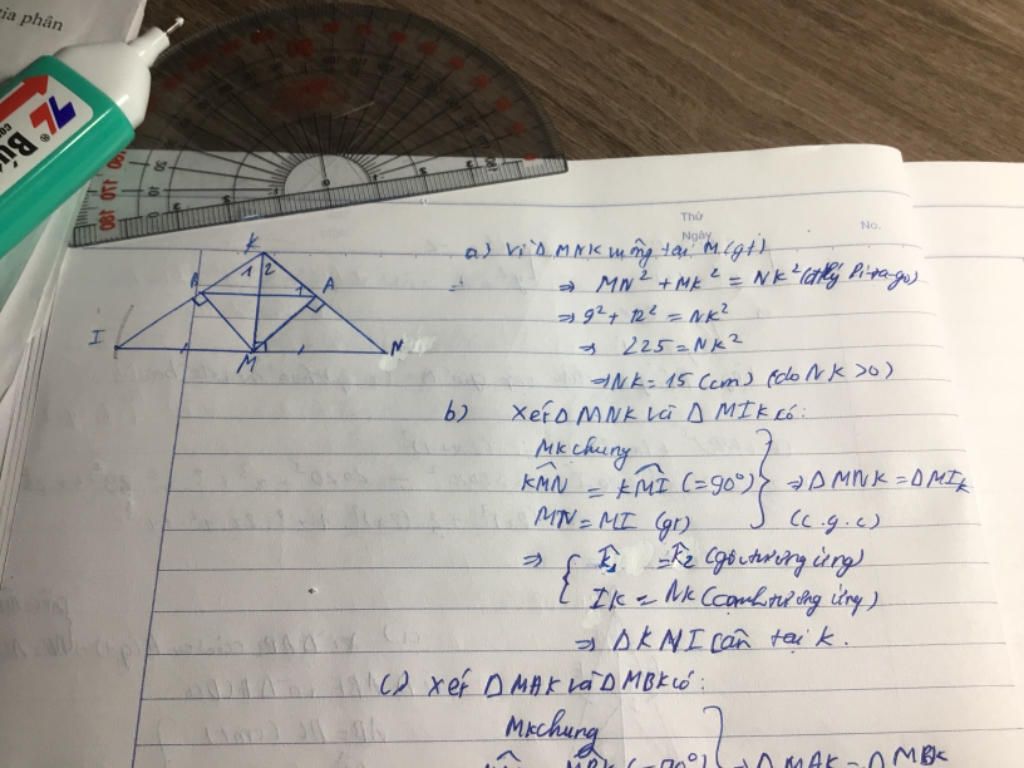 gia phân
Bút
Thứ
Ngày
No.
K
1 2
B
1 A
I
M
N
a) Vì Δ MNK vuông tại M (gt)
⇒ MN² + MK² = NK² (đ/lý Pi-ta-go)
⇒ 9² + 12² = NK²
⇒ 225 = NK²
⇒ NK = 15 (cm) (do NK > 0)
b) Xét Δ MNK và Δ MIK có:
MK chung
KMN = KMI (= 90°) ⇒ Δ MNK = Δ MIK
MN = MI (gt) (c.g.c)
⇒ K̂₁ = K̂₂ (góc tương ứng)
IK = NK (cạnh tương ứng)
⇒ Δ KNI cân tại K.
c) Xét Δ MAK và Δ MBK có:
MK chung
MBK (= 90°) ⇒ Δ MAK = Δ MBK